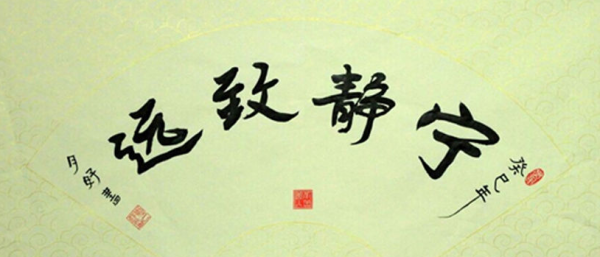 癸巳年
宁静致远
月好書